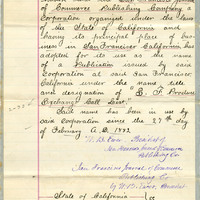 of Commerce Publishing Company a
Corporation organized under the laws
of the State of California and
having its principal place of bus-
iness in San Francisco California has
adopted for its use as a name
of a Publication issued by said
Corporation at said San Francisco
California under the name title
and designation of "S. F. Produce
Exchange Call List."
Said name has been in use by
said Corporation since the 27th day
of February A.D. 1882
President of
San Francisco Journal of Commerce
Publishing Co.
San Francisco Journal of Commerce
Publishing Co.
by President
State of California